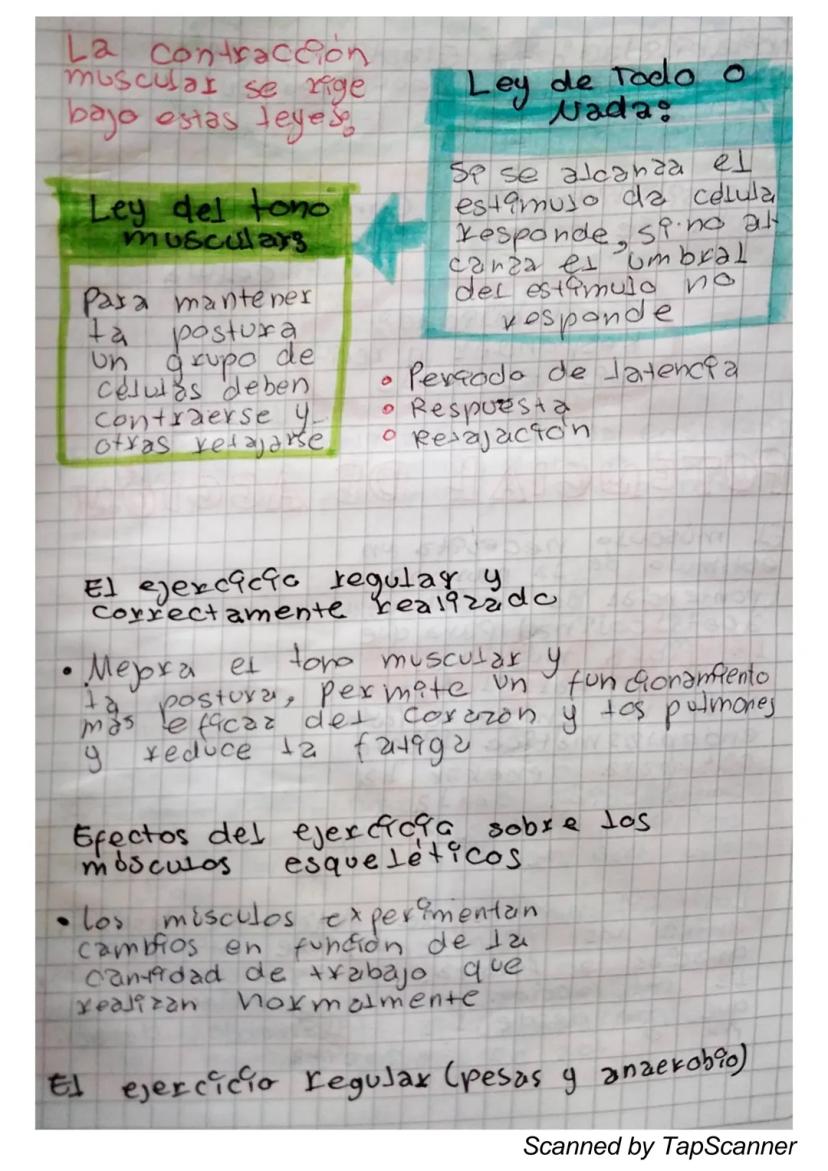 La contracción
muscular se rige
bajo estas leyes:
Ley de Todo o
Nada:
Si se alcanza el
estímulo da célula
responde, si no al-
canza el umbral
del estímulo no
responde
Ley del tono
muscular:
Para mantener
la postura
un grupo de
células deben
contraerse y
otras relajarse
Periodo de latencia
Respuesta
Relajación
El ejercicio regular y
correctamente realizado
• Mejora el tono muscular y
la postura, permite un funcionamiento
más eficaz del corazón y los pulmones
y reduce la fatiga
Efectos del ejercicio sobre los
músculos esqueléticos
• los músculos experimentan
cambios en función de la
cantidad de trabajo que
realizan normalmente
El ejercicio regular (pesas y anaerobio)
Scanned by TapScanner